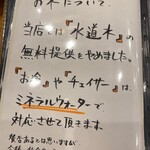 お水について。
当店では『水道水』の
無料提供をやめました。
『お冷』や『チェイサー』は、
ミネラルウォーターで
対応させて頂きます。
賛否あるとは思いますが、